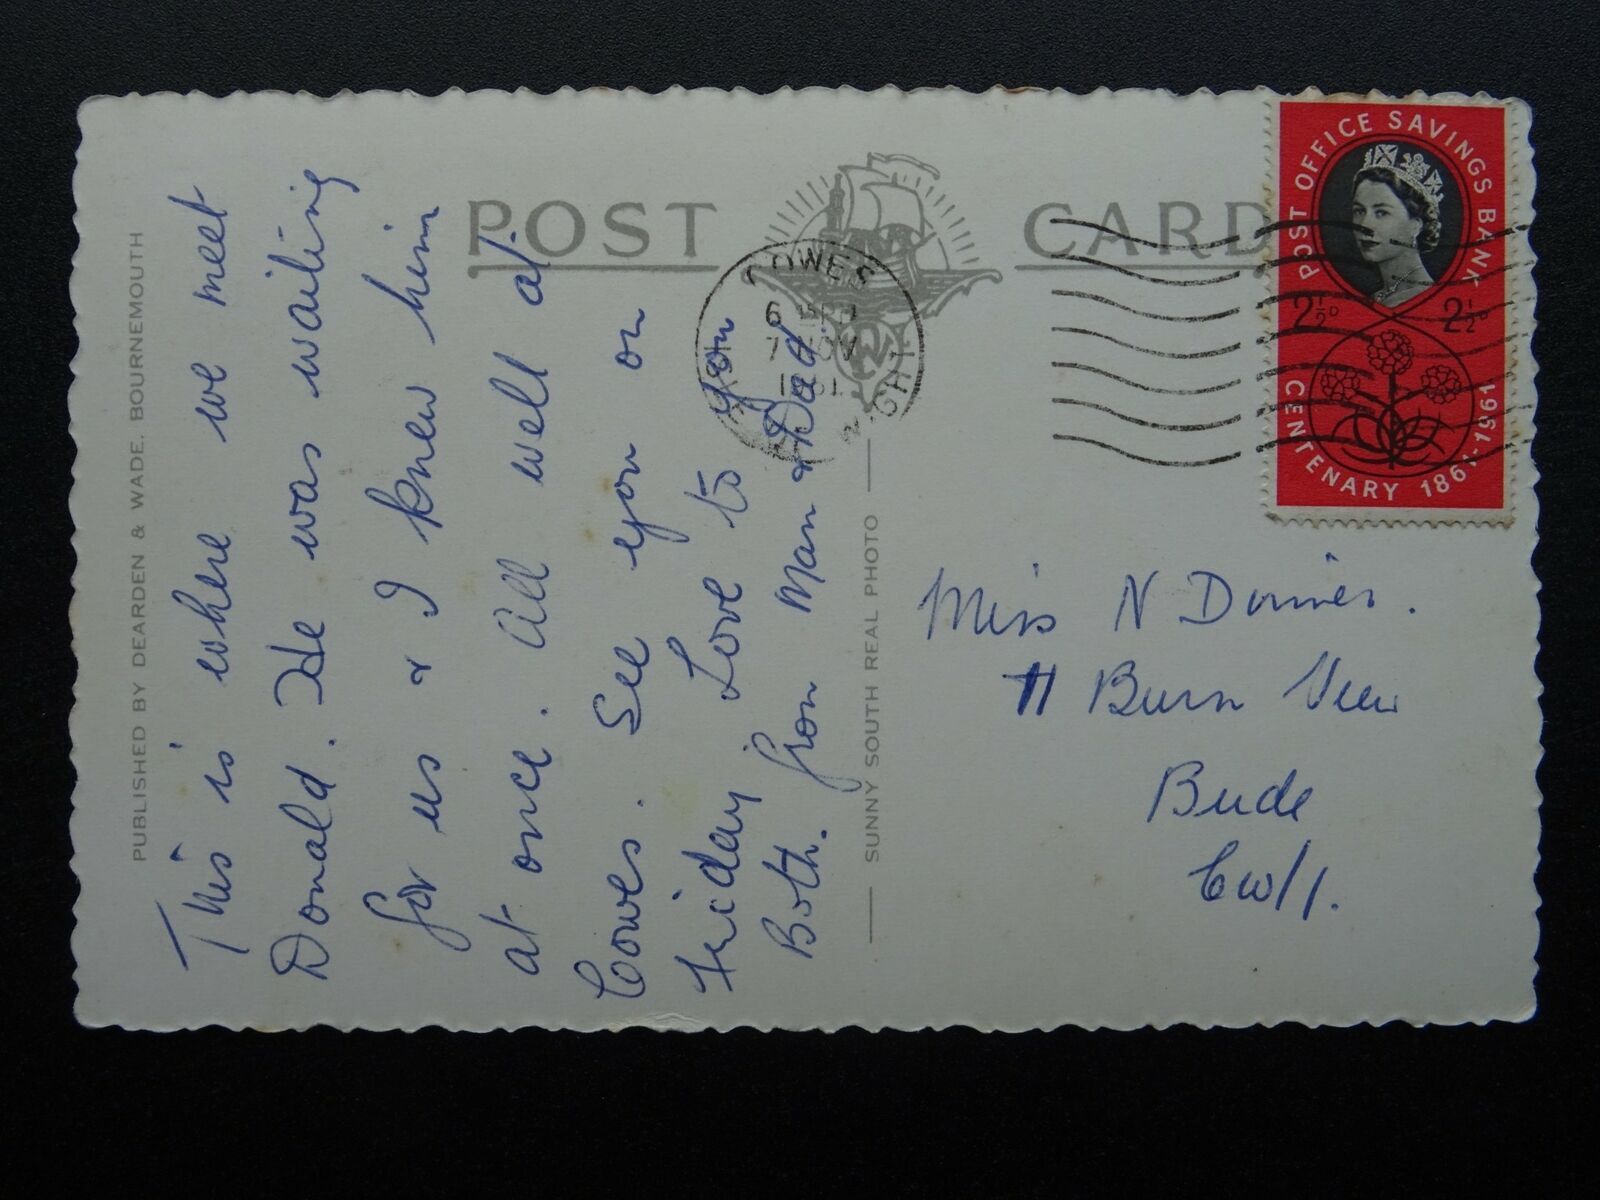 POST CARD
PUBLISHED BY DEARDEN & WADE, BOURNEMOUTH
This is where we meet
Donald. He was waiting
for us & I knew him
at once. All well at
Cowes. See you on
Friday Love to you
Both. from Mam & Dad
SUNNY SOUTH REAL PHOTO
COWES
6
7 NOV
1961
WIGHT
POST OFFICE SAVINGS BANK
2½D 2½D
CENTENARY 1861-1961
Miss N
11 Burn View
Bude
Cwll.